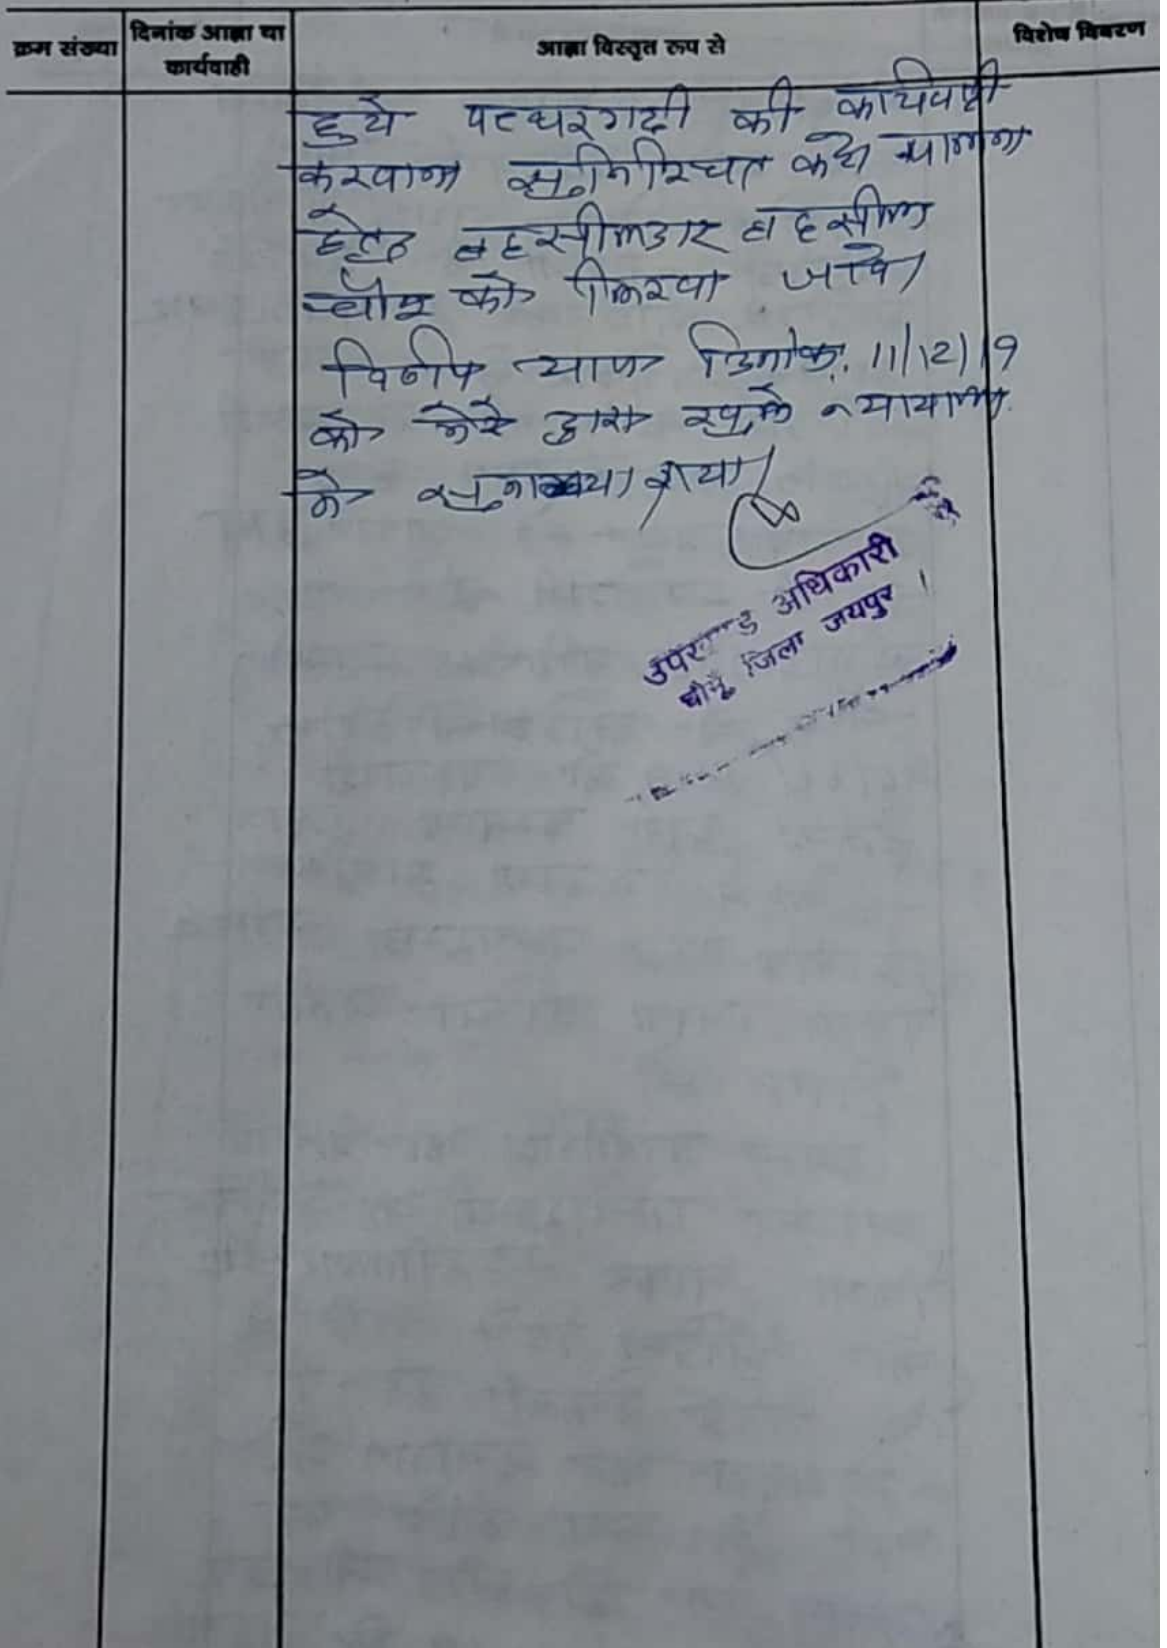 क्रम संख्या
दिनांक आज्ञा या
कार्यवाही
आज्ञा विस्तृत रूप से
विशेष विवरण
हुये पत्थरगढी की कार्यवाही
करवाना सुनिश्चित करे पालना
हेतु तहसीलदार तहसील
चौमू को लिखा जावे।
निर्णय आज दिनांक 11/12/19
को मेरे द्वारा खुले न्यायालय
मे सुनाया गया।
उपखण्ड अधिकारी
चौमूँ जिला जयपुर